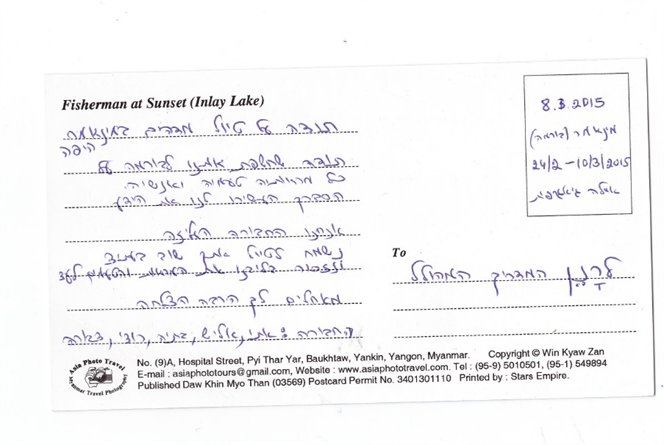 Fisherman at Sunset (Inlay Lake)
תודה על טיול מדהים במינאמר
היפה
תודה שחשפת אותנו לבורמה על
כל
הסברך העשירו לנו את הידע
אנחנו החבורה העליזה
נשמח לטייל איתך שוב בעתיד
ולעד
מאחלים לך הרבה הצלחה
החבורה: אתי, אליש, בתיה, רוצי,
8.3.2015
מינאמר (בורמה)
24/2-10/3/2015
אילה
To
לרנן המדריך המהולל
Asia Photo Travel
Myanmar Travel Photography
No. (9)A, Hospital Street, Pyi Thar Yar, Baukhtaw, Yankin, Yangon, Myanmar. Copyright © Win Kyaw Zan
E-mail : asiaphototours@gmail.com, Website : www.asiaphototravel.com. Tel : (95-9) 5010501, (95-1) 549894
Published Daw Khin Myo Than (03569) Postcard Permit No. 3401301110 Printed by : Stars Empire.